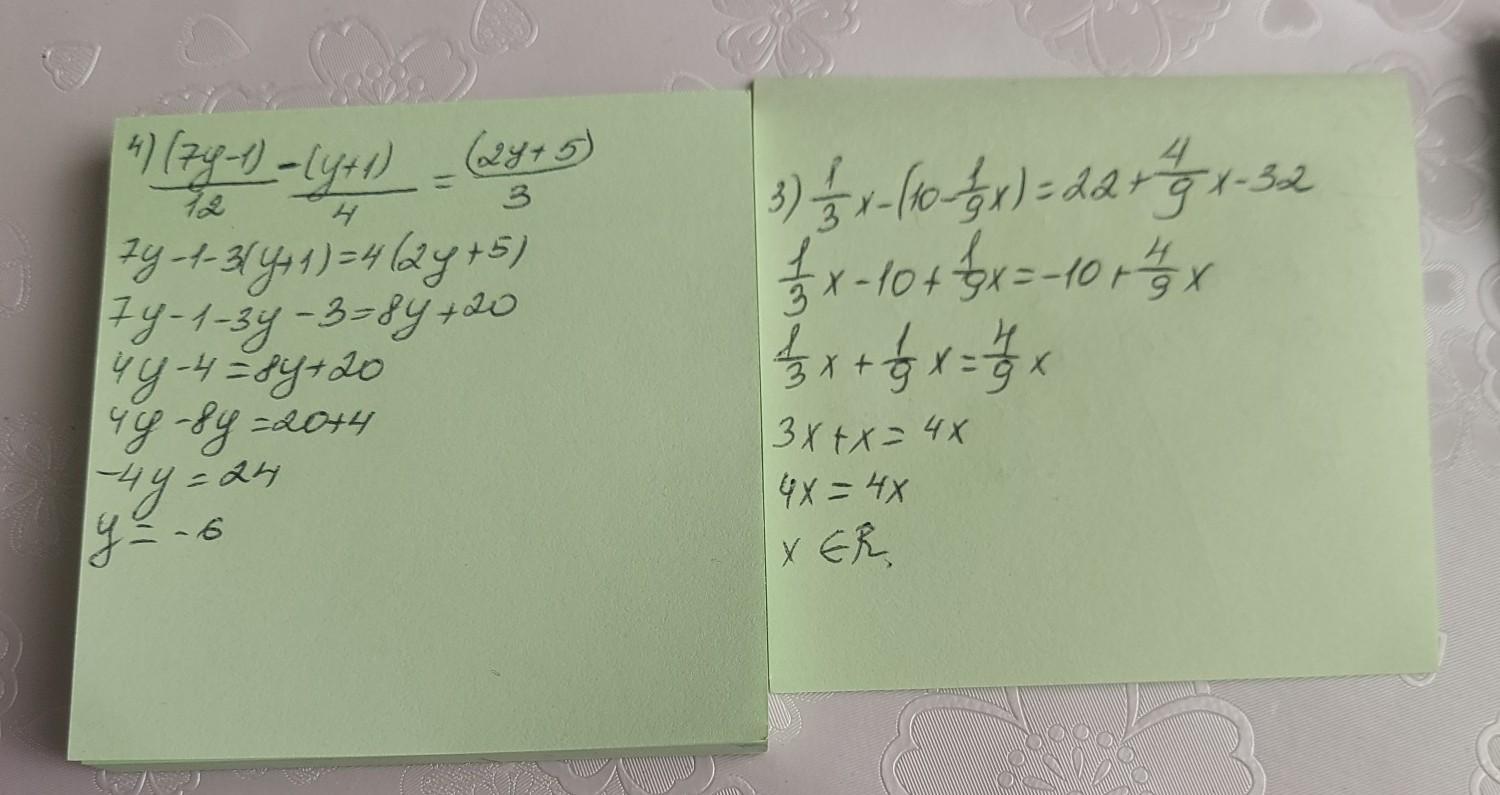 4) (7y-1)/12 - (y+1)/4 = (2y+5)/3
7y-1-3(y+1)=4(2y+5)
7y-1-3y-3=8y+20
4y-4=8y+20
4y-8y=20+4
-4y=24
y=-6
3) 1/3 x-(10-1/9 x)=22+4/9 x-32
1/3 x-10+1/9 x=-10+4/9 x
1/3 x+1/9 x=4/9 x
3x+x=4x
4x=4x
x∈R.